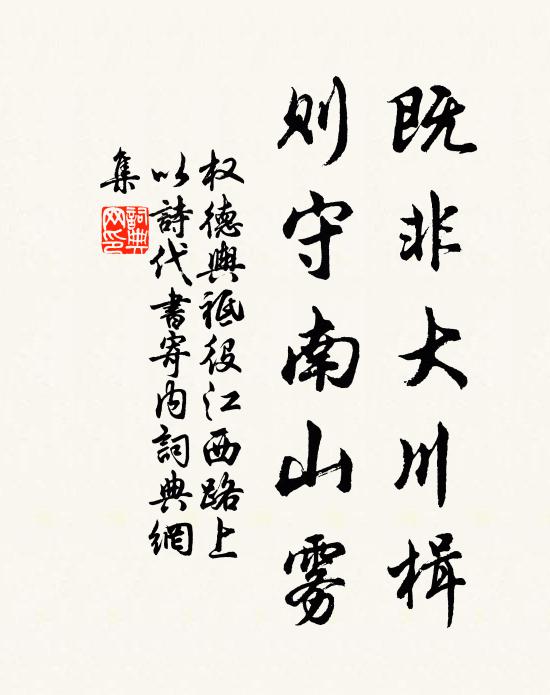 既非大川楫
则守南山雾
权德舆祗役江西路上
以詩代書寄内詞典網
集
詞典網印